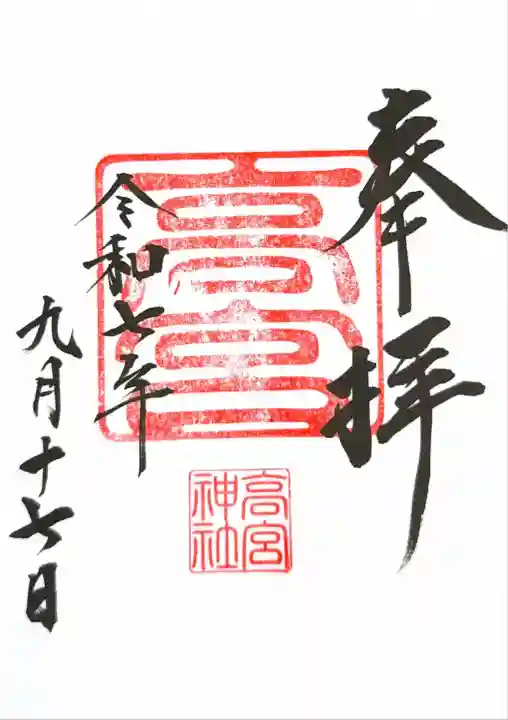 奉拝
高宮
高宮
神社
令和七年
九月十七日